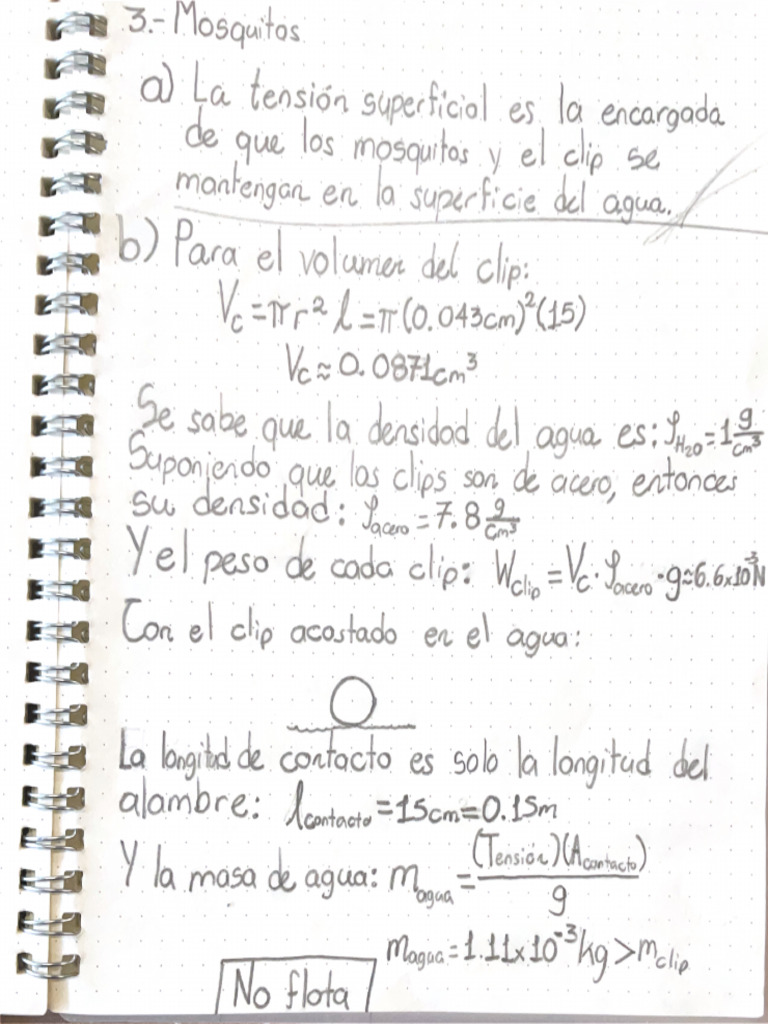 3.- Mosquitos
a) La tensión superficial es la encargada
de que los mosquitos y el clip se
mantengan en la superficie del agua.
b) Para el volumen del clip:
V_c = πr² l = π(0.043cm)²(15)
V_c ≈ 0.0871cm³
Se sabe que la densidad del agua es: ρ_H₂O = 1 g/cm³
Suponiendo que los clips son de acero, entonces
su densidad: ρ_acero = 7.8 g/cm³
Y el peso de cada clip: W_clip = V_c · ρ_acero · g ≈ 6.6x10⁻³N
Con el clip acostado en el agua:
La longitud de contacto es solo la longitud del
alambre: l_contacto = 15cm = 0.15m
Y la masa de agua: m_agua = (Tensión)(A_contacto)/g
m_agua = 1.11x10⁻³kg > m_clip
No flota